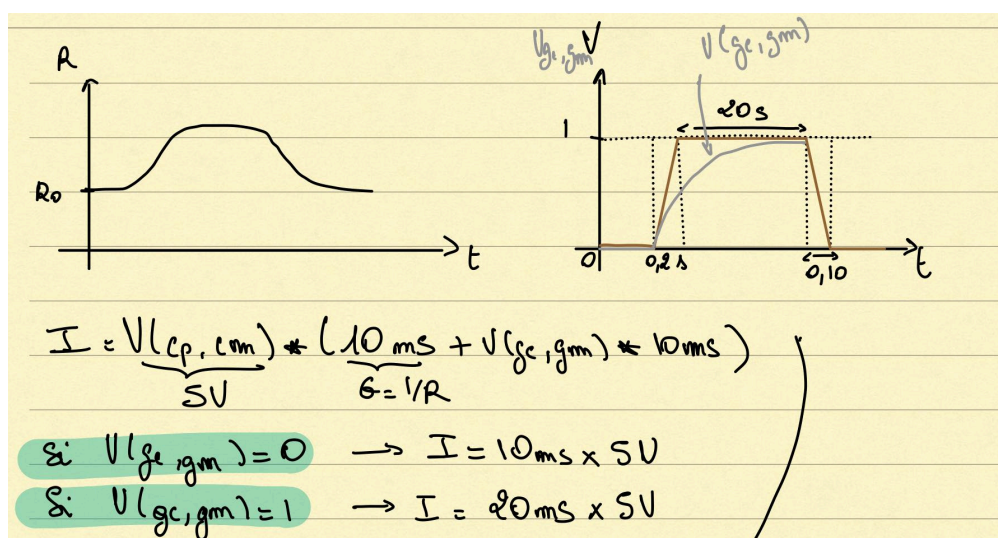 R
R₀
t
Vgc,gm V
V(gc,gm)
20s
1
0
0,2 s
0,10
t
I = V(cp, cm) * (10 ms + V(gc, gm) * 10ms)
5V
G = 1/R
Si V(gc, gm) = 0 → I = 10ms x 5V
Si V(gc, gm) = 1 → I = 20ms x 5V